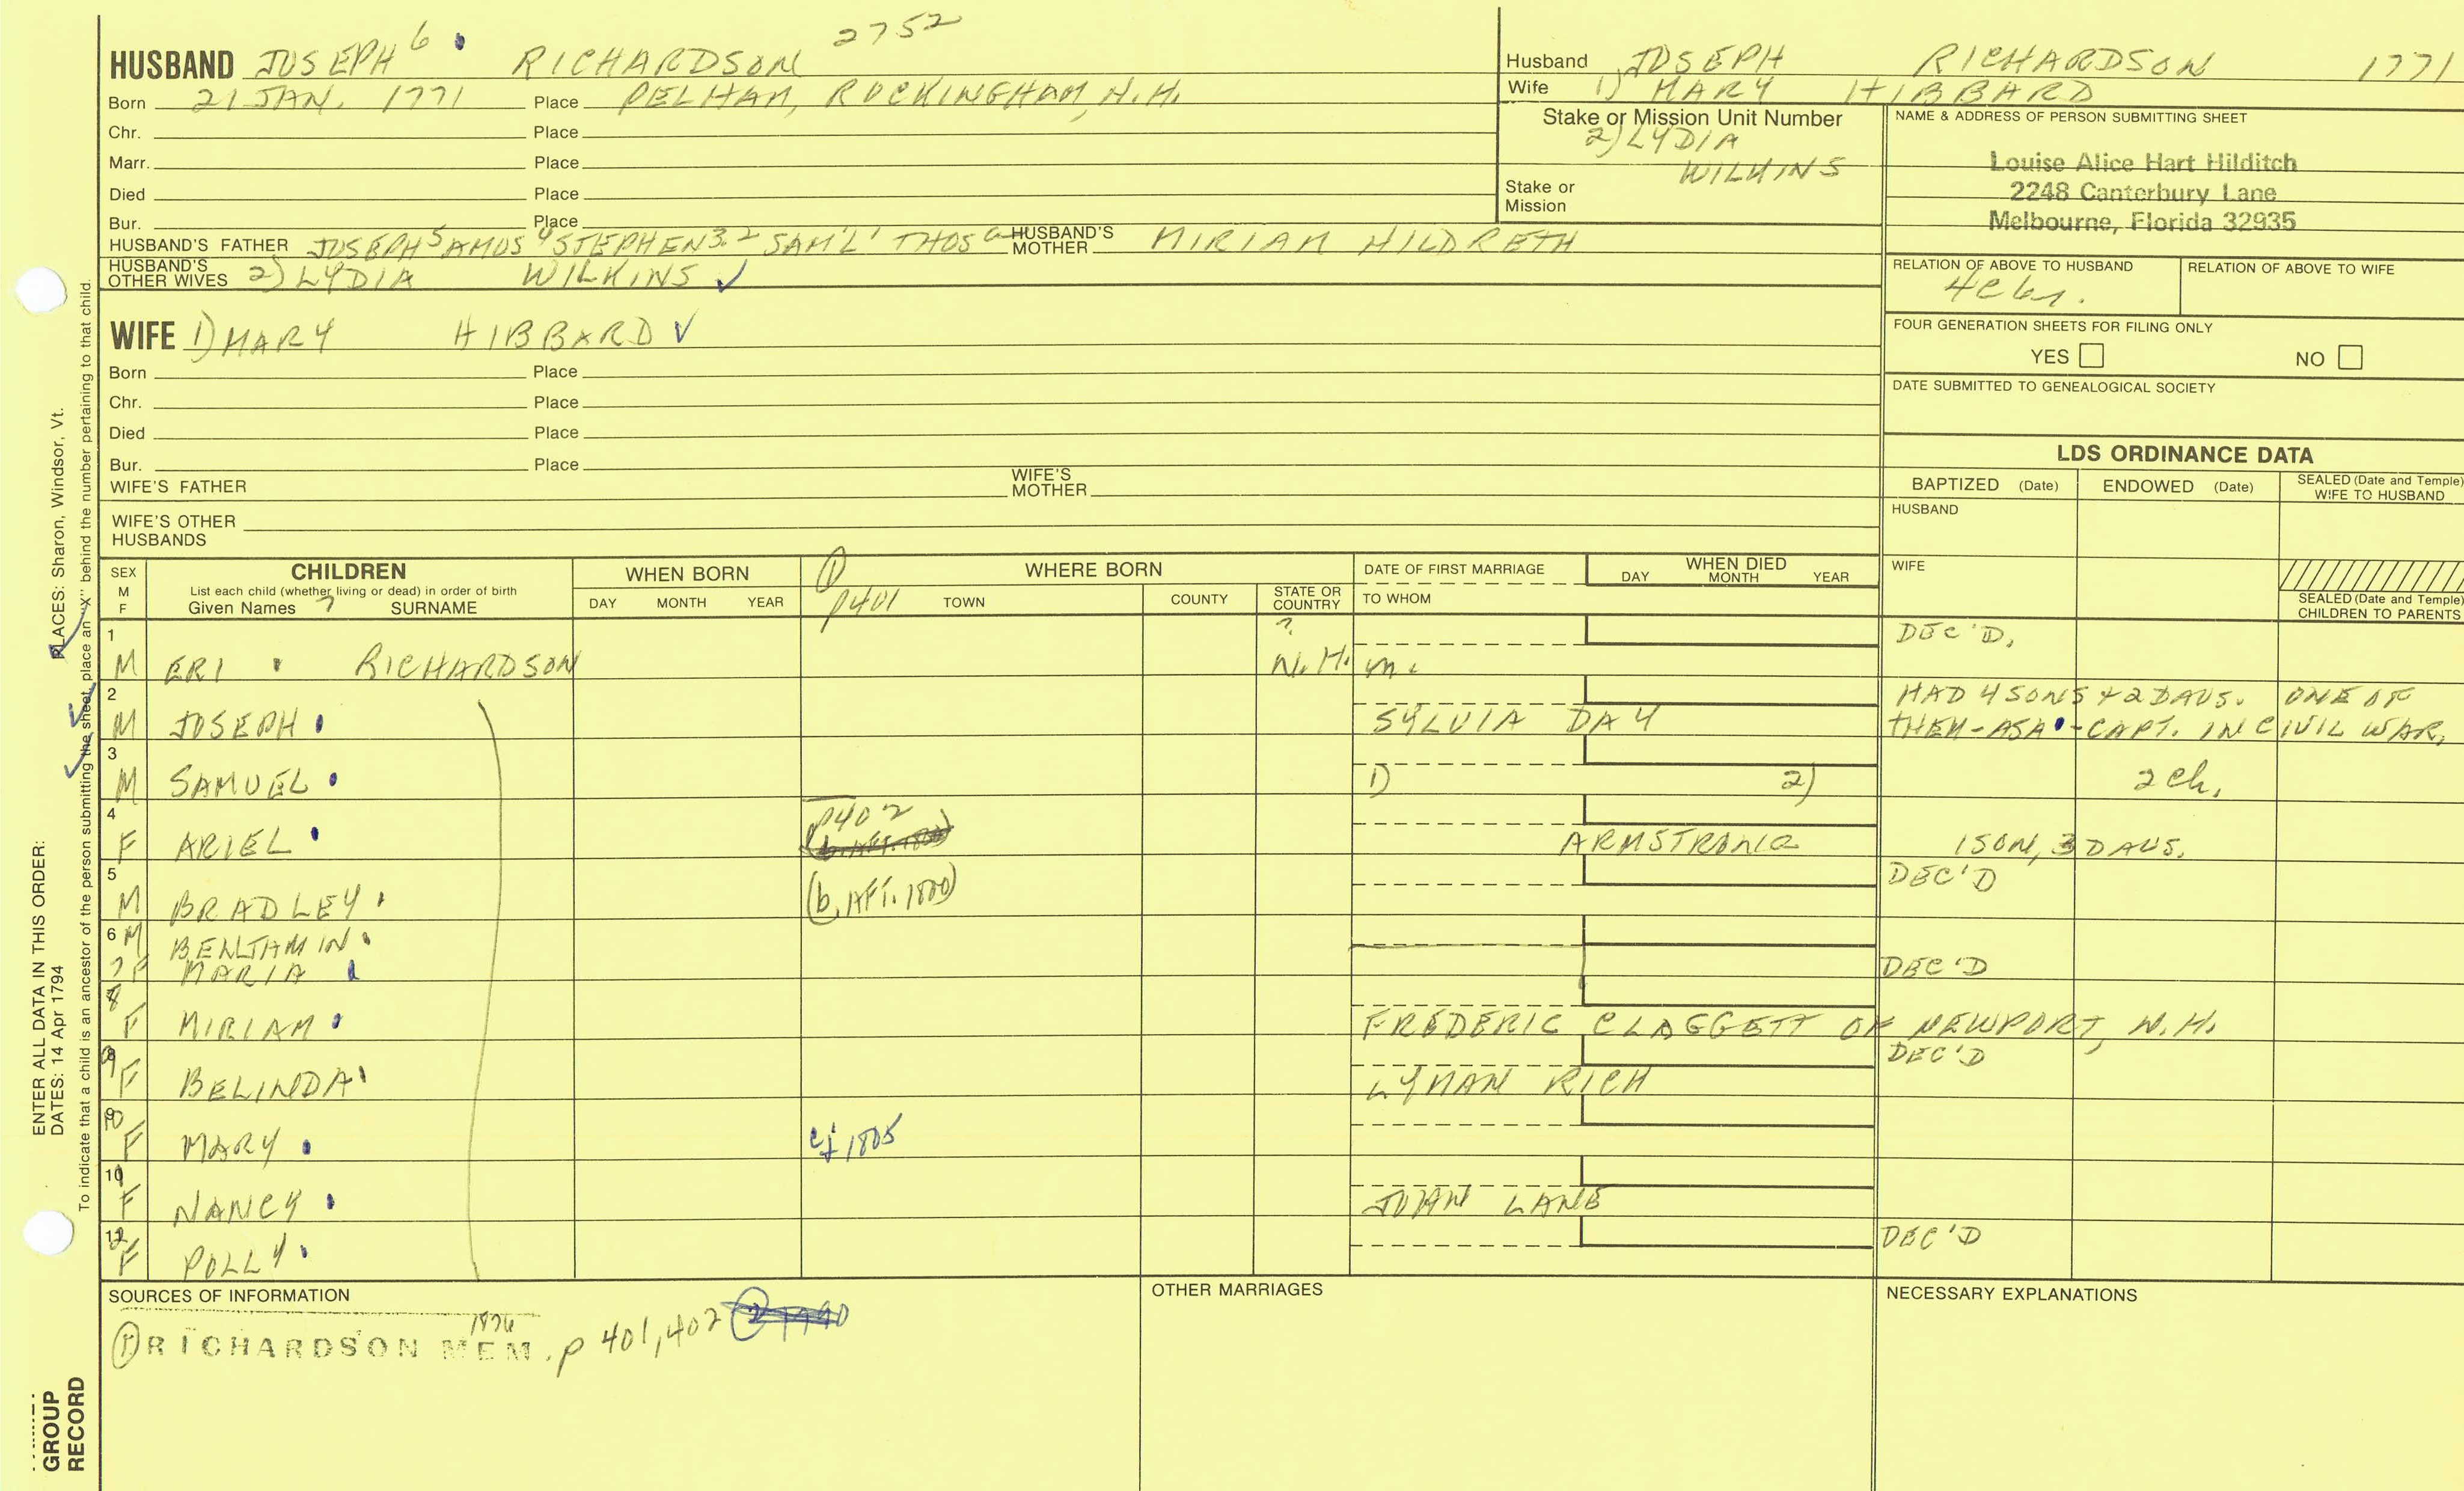 2752
HUSBAND JOSEPH 6 RICHARDSON
Born 21 JAN. 1771 Place PELHAM, ROCKINGHAM, N.H.
Chr. Place
Marr. Place
Died Place
Bur. Place
HUSBAND'S FATHER JOSEPH 5 AMOS 4 STEPHEN 3,2 SAM'L 1 THOS a HUSBAND'S MOTHER MIRIAM HILDRETH
HUSBAND'S OTHER WIVES 2) LYDIA WILKINS ✓
WIFE 1) MARY HIBBARD ✓
Born Place
Chr. Place
Died Place
Bur. Place
WIFE'S FATHER WIFE'S MOTHER
WIFE'S OTHER HUSBANDS
Husband JOSEPH RICHARDSON 1771
Wife 1) MARY HIBBARD
Stake or Mission Unit Number
2) LYDIA
WILKINS
Stake or Mission
NAME & ADDRESS OF PERSON SUBMITTING SHEET
Louise Alice Hart Hilditch
2248 Canterbury Lane
Melbourne, Florida 32935
RELATION OF ABOVE TO HUSBAND RELATION OF ABOVE TO WIFE
4c6r.
FOUR GENERATION SHEETS FOR FILING ONLY
YES NO
DATE SUBMITTED TO GENEALOGICAL SOCIETY
LDS ORDINANCE DATA
BAPTIZED (Date) ENDOWED (Date) SEALED (Date and Temple) WIFE TO HUSBAND
HUSBAND
WIFE
SEALED (Date and Temple) CHILDREN TO PARENTS
SEX M F
CHILDREN
List each child (whether living or dead) in order of birth
Given Names ? SURNAME
WHEN BORN
DAY MONTH YEAR
1 WHERE BORN
p401 TOWN COUNTY STATE OR COUNTRY
DATE OF FIRST MARRIAGE
TO WHOM
WHEN DIED
DAY MONTH YEAR
1 ? DEC'D.
M ERI RICHARDSON N.H. m.
2 HAD 4 SONS + 2 DAUS. ONE OF
M JOSEPH SYLVIA DAY THEM-ASA-CAPT. IN CIVIL WAR.
3
M SAMUEL 1) 2) 2 ch.
4 p402
F ARIEL ARMSTRONG 1 SON, 3 DAUS.
5 DEC'D
M BRADLEY (b. AFT. 1800)
6 M BENJAMIN
7 F MARIA DEC'D
8
F MIRIAM FREDERIC CLAGGETT OF NEWPORT, N.H.
9 DEC'D
F BELINDA LYMAN RICH
10
F MARY 1805
10
F NANCY JOHN LANE
12 DEC'D
F POLLY
SOURCES OF INFORMATION
OTHER MARRIAGES
NECESSARY EXPLANATIONS
1 RICHARDSON MEM. 1876 p 401, 402
ENTER ALL DATA IN THIS ORDER:
DATES: 14 Apr 1794 PLACES: Sharon, Windsor, Vt.
To indicate that a child is an ancestor of the person submitting the sheet, place an "X" behind the number pertaining to that child.
GROUP
RECORD